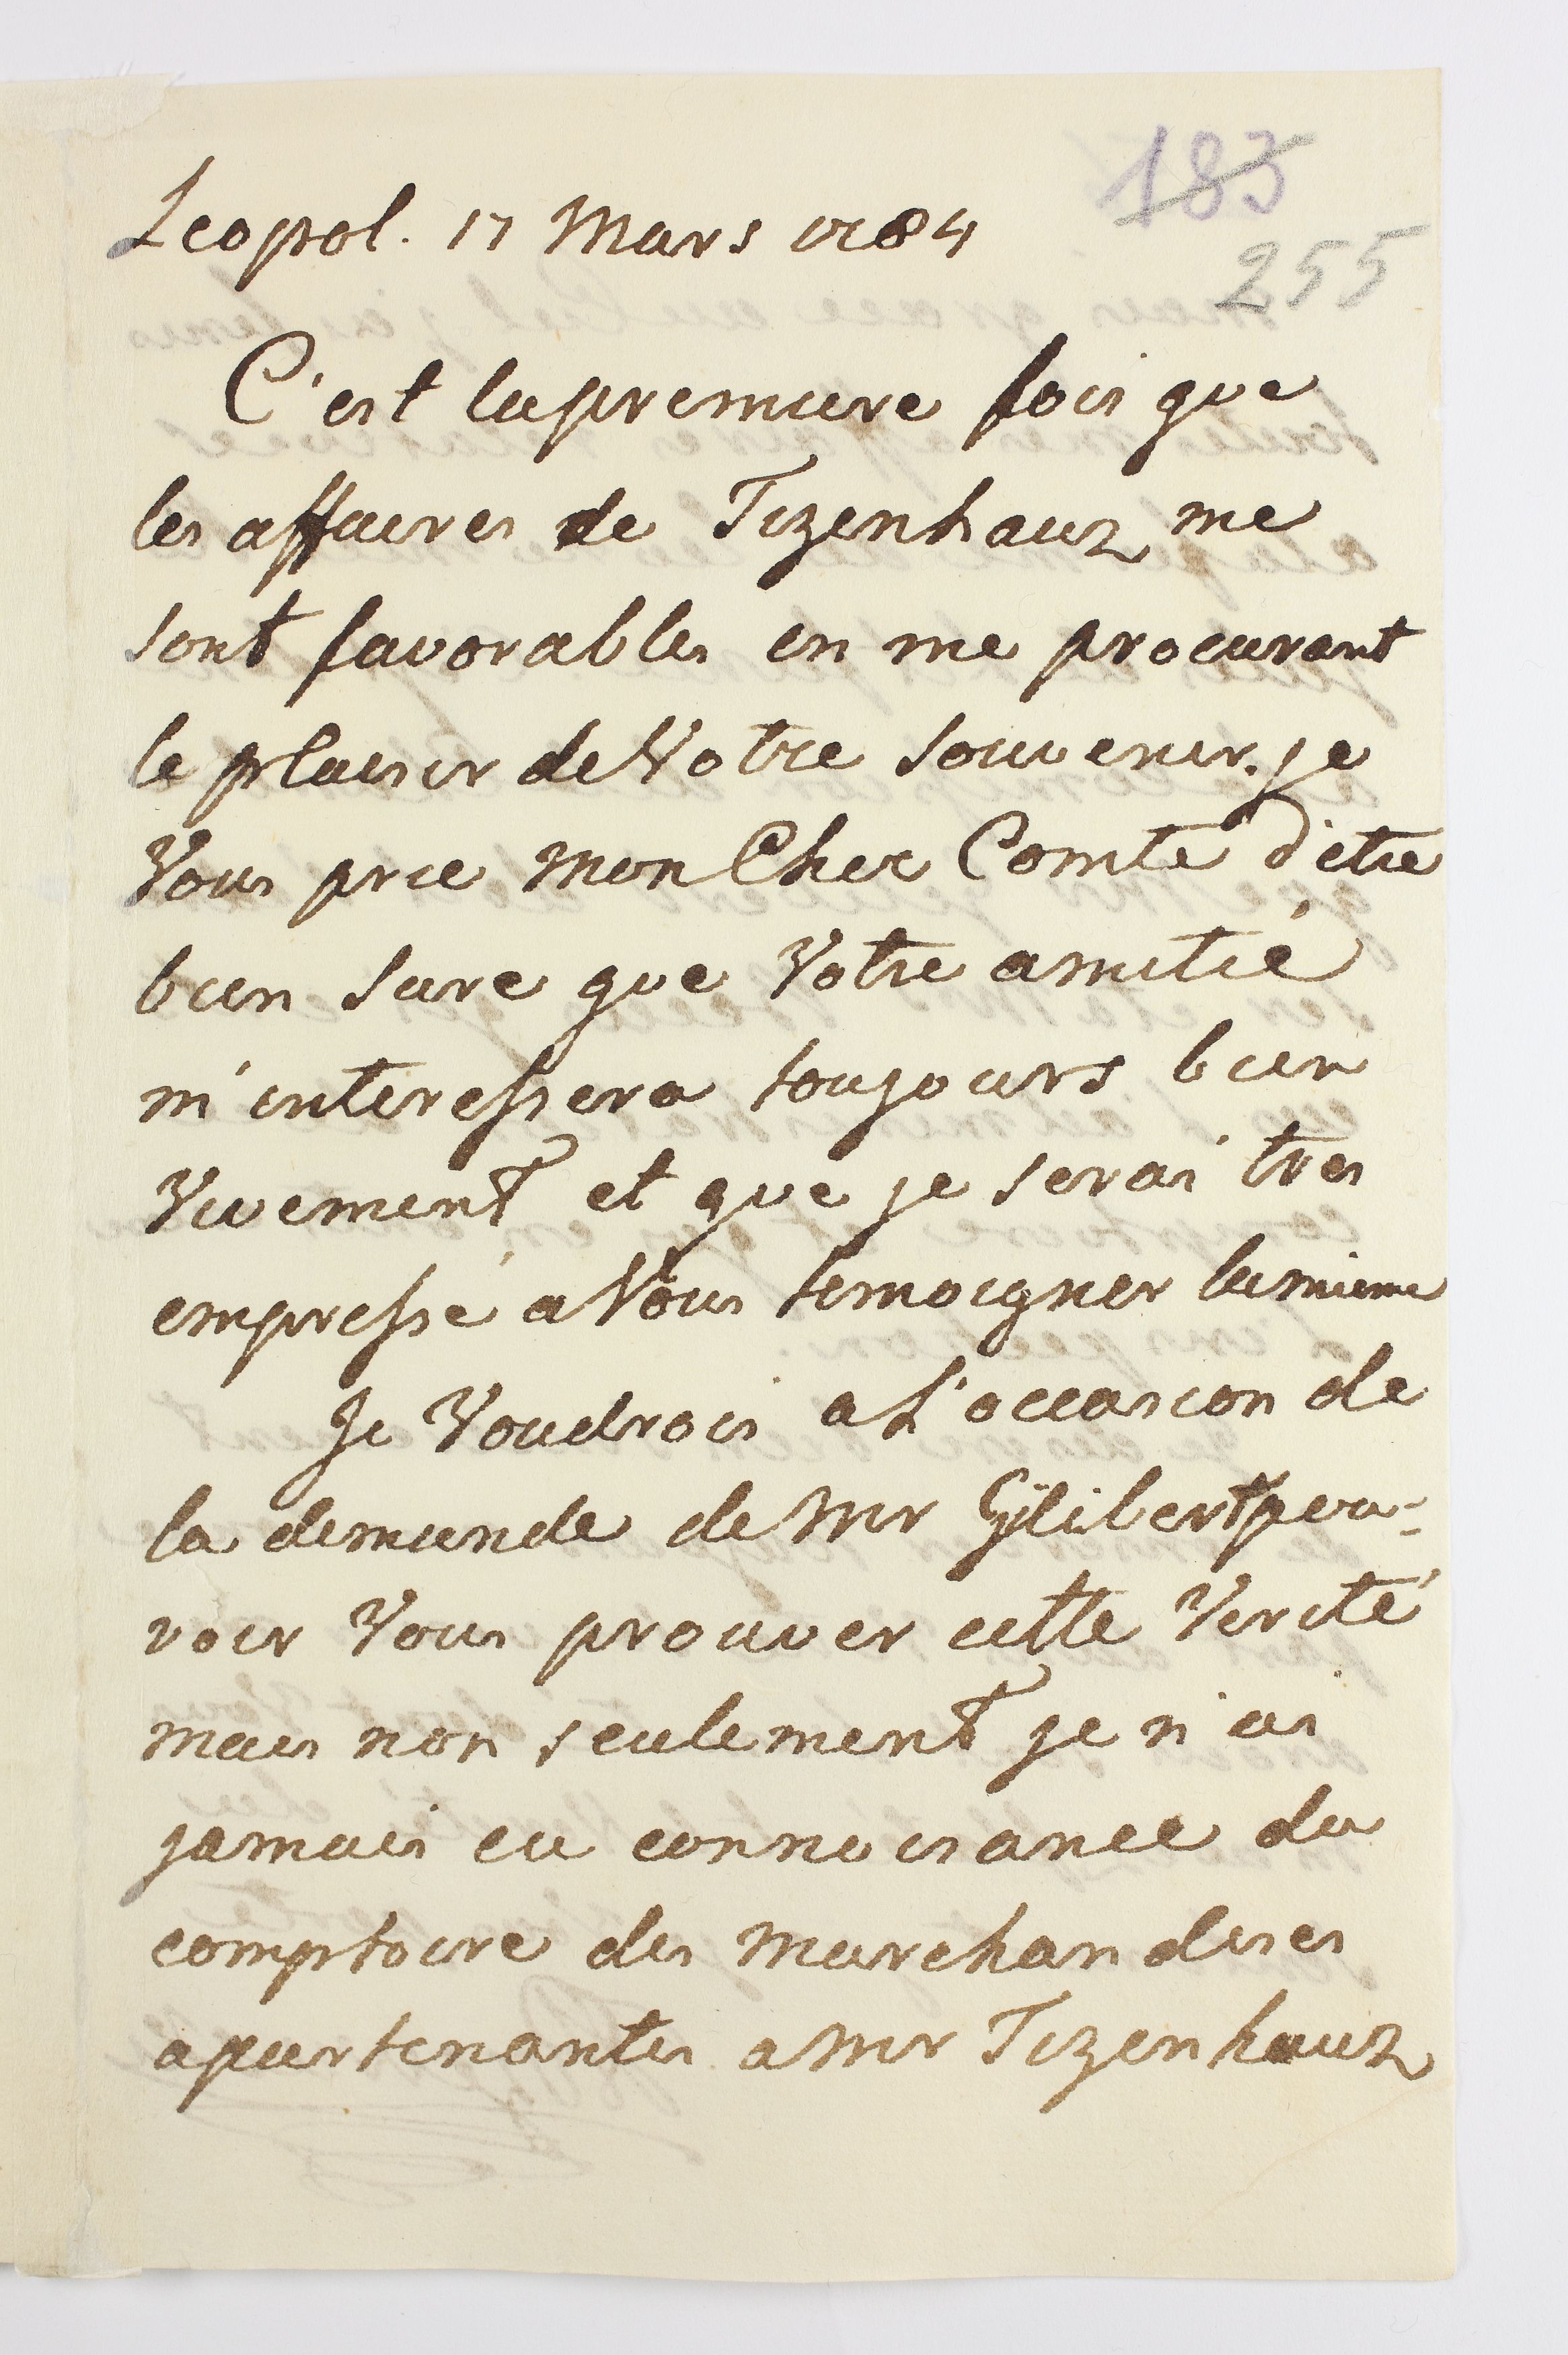 183
Leopol. 17 Mars 1784
255
C'est la premiere fois que
les affaires de Tizenhauz me
sont favorables en me procurant
le plaisir de Votre souvenir. je
Vous prie mon Cher Comte d'etre
bien sure que Votre amitié
m'interessera toujours bien
Vivement et que je serai tres
empressé a Vous temoigner la mienne
Je Voudrois a L'occasion de
la demande de Mr Gÿlibert pou-
voir Vous prouver cette Verité
mais non seulement je n'ai
jamais eu connoisance du
comptoire des marchandises
apartenantes a Mr Tizenhauz